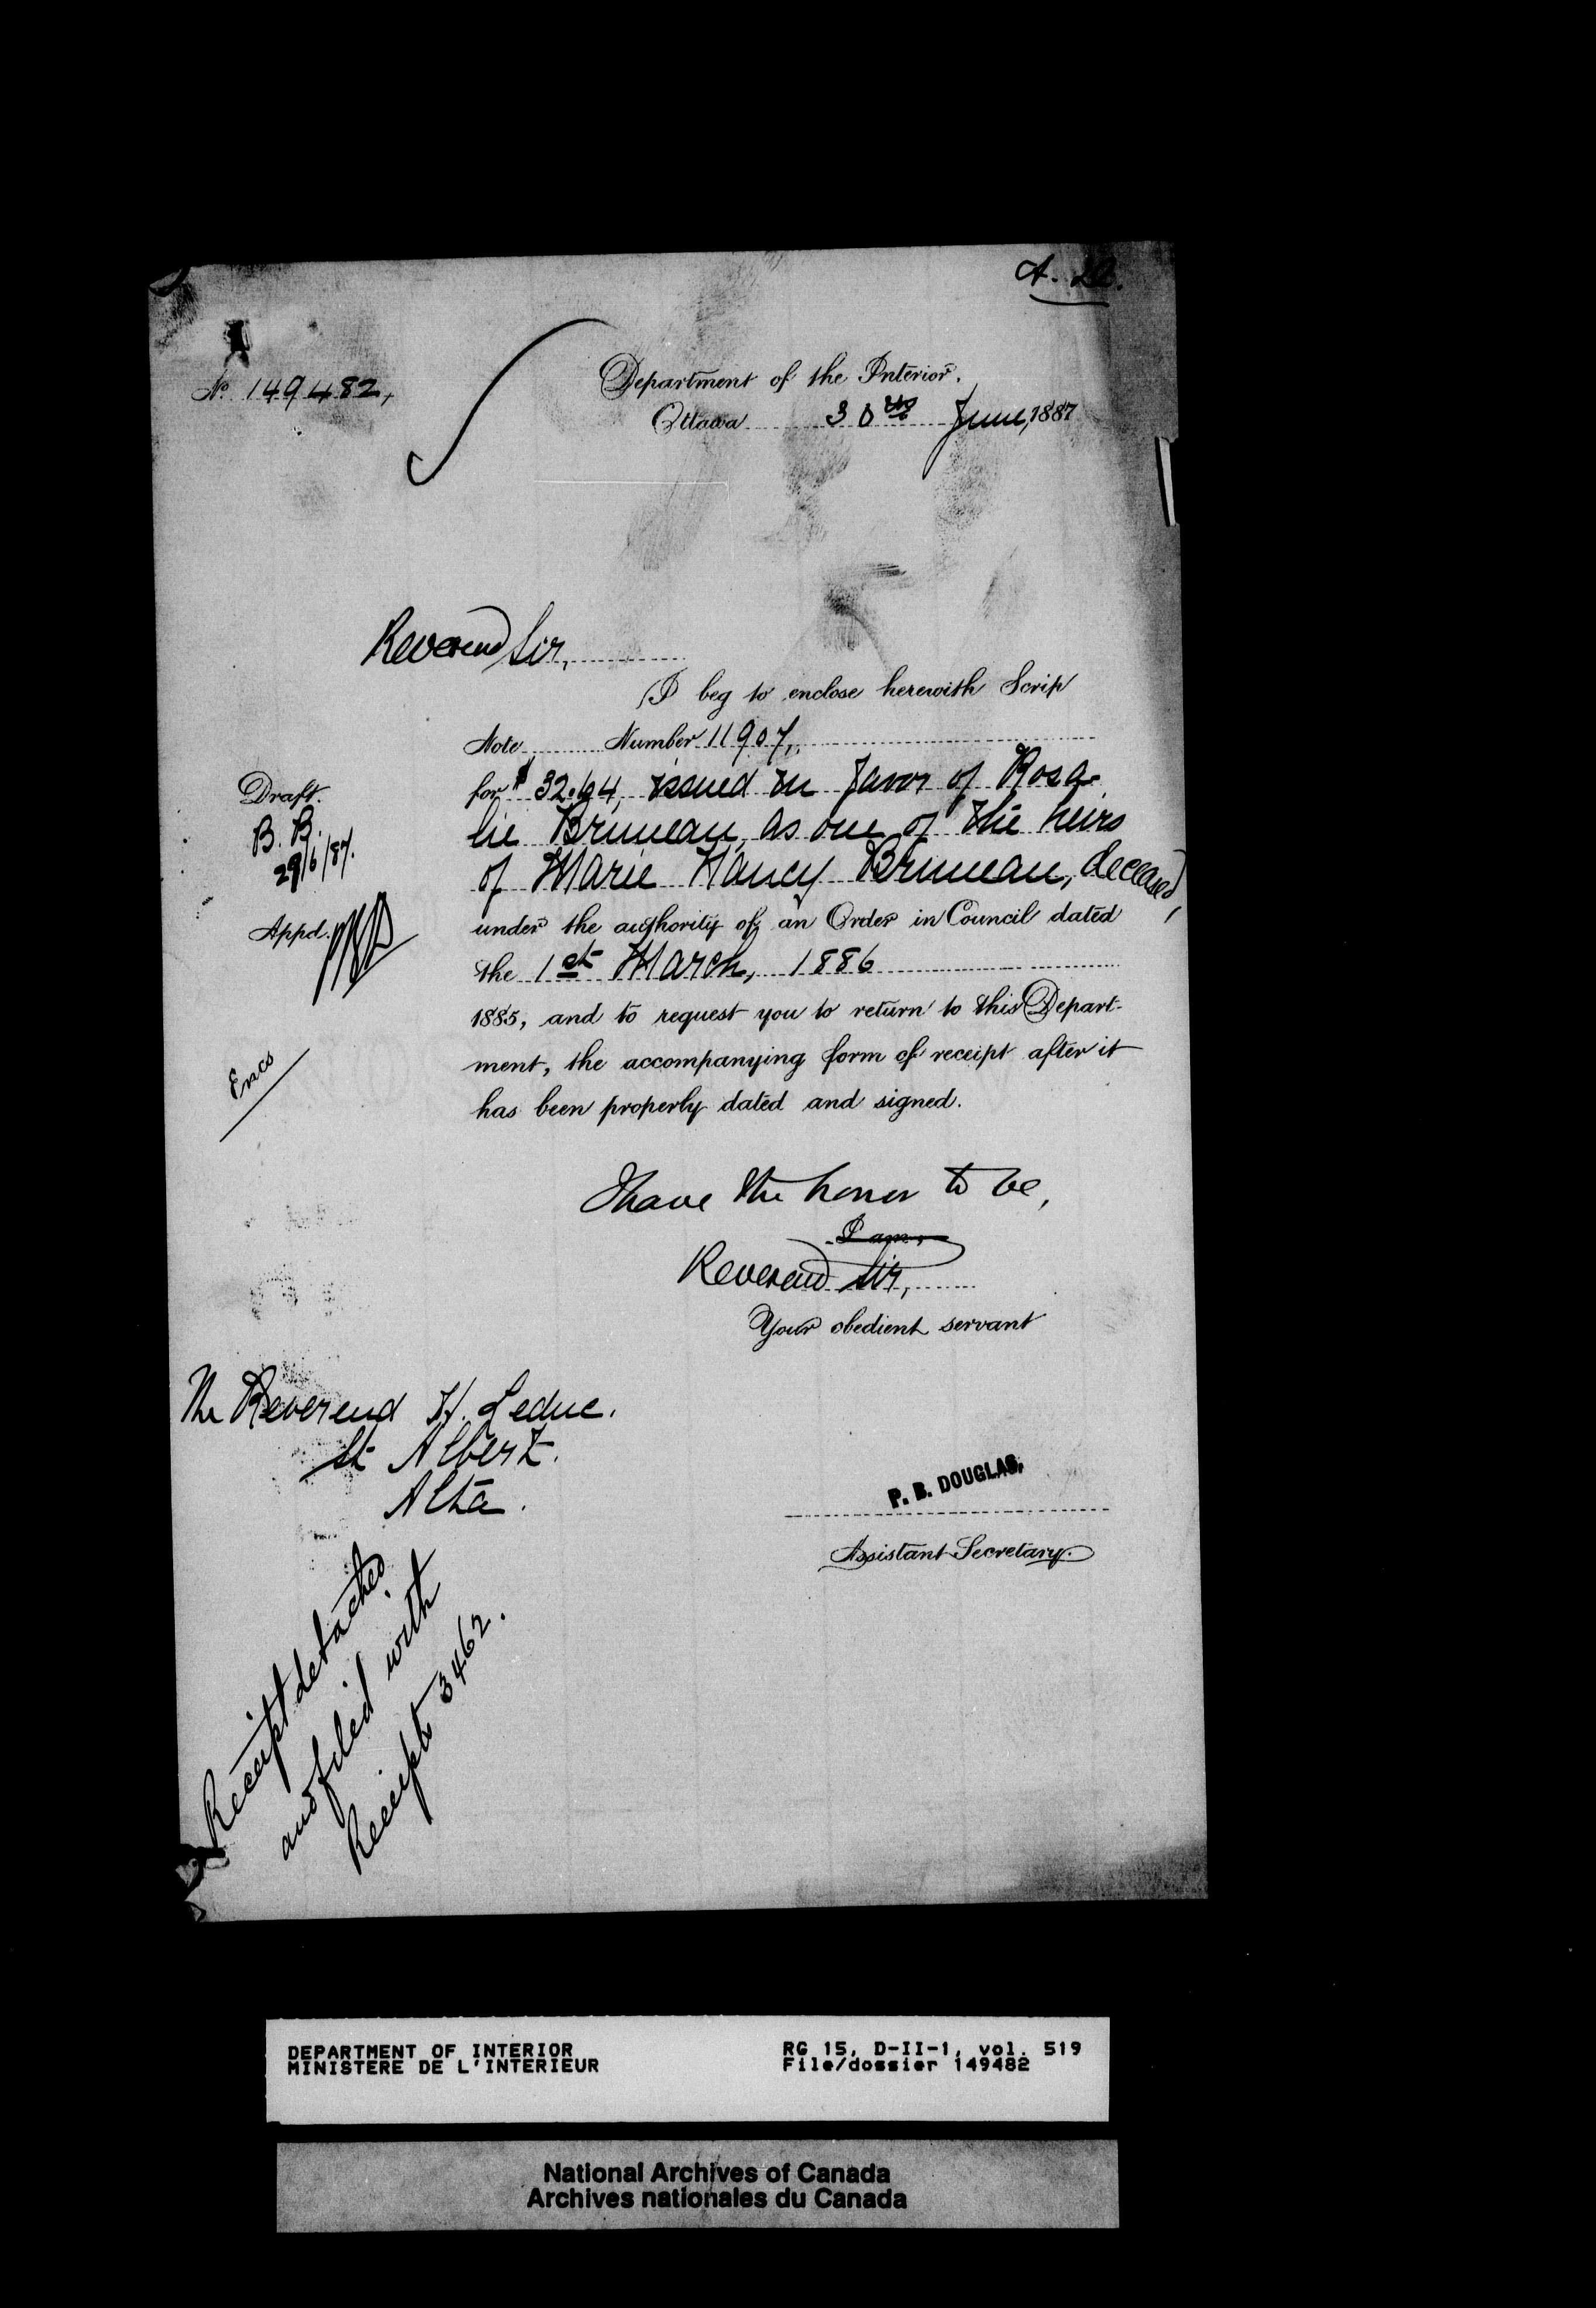 No 149482,
Department of the Interior.
Ottawa 30th June, 1887
Reverend Sir,
I beg to enclose herewith Scrip
Note Number 11907,
for $32.64, issued in favor of Rosa-
lie Bruneau, as one of the heirs
of Marie Nancy Bruneau, deceased,
under the authority of an Order in Council dated
the 1st March, 1886
1885, and to request you to return to this Depart-
ment, the accompanying form of receipt after it
has been properly dated and signed.
Draft.
B. B.
29/6/87.
Appd.
Encs
I have the honor to be,
I am,
Reverend Sir,
Your obedient servant
The Reverend H. Leduc.
St Albert.
Alta.
P. B. DOUGLAS,
Assistant Secretary.
Receipt detached
and filed with
Receipts 3462.
DEPARTMENT OF INTERIOR
MINISTERE DE L'INTERIEUR
RG 15, D-II-1, vol. 519
File/dossier 149482
National Archives of Canada
Archives nationales du Canada